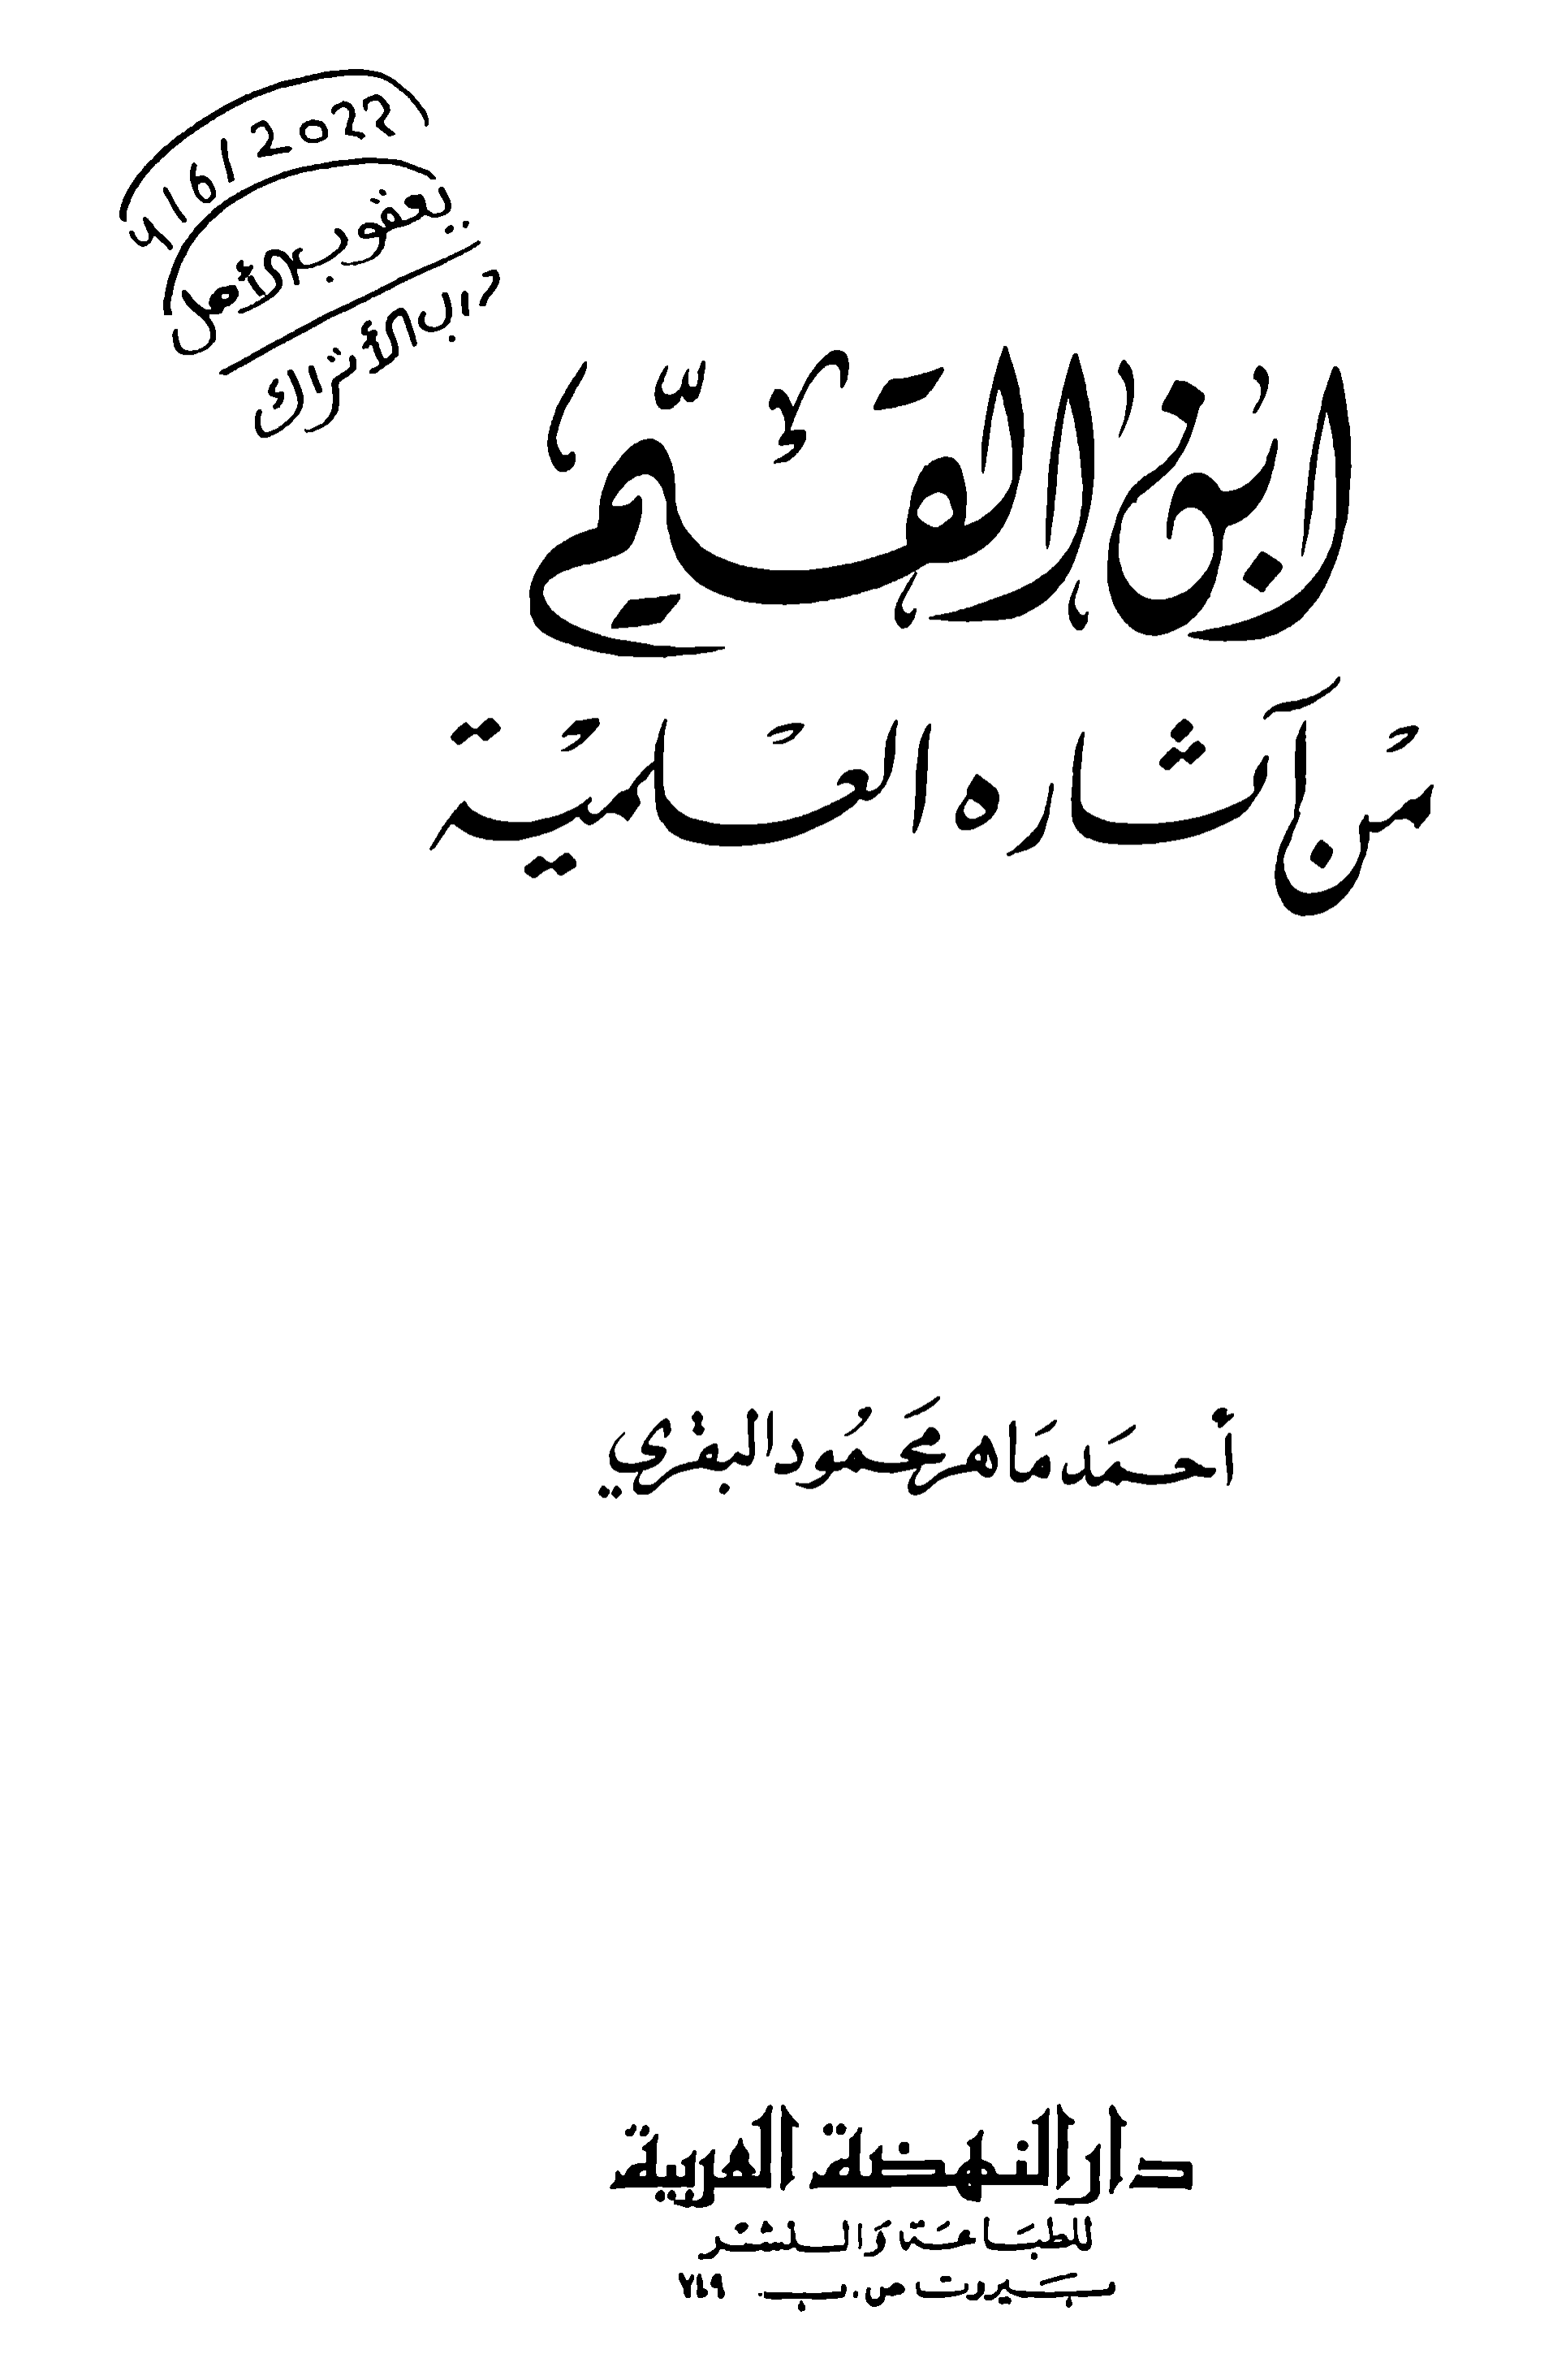 4/6/2022
يعقوب الأهل
باب الأتراك
ابن القيم
من آثاره العلمية
أحمد ماهر محمود البقري
دار النهضة العربية
للطباعة والنشر
بيروت ص.ب. ٧٤٩